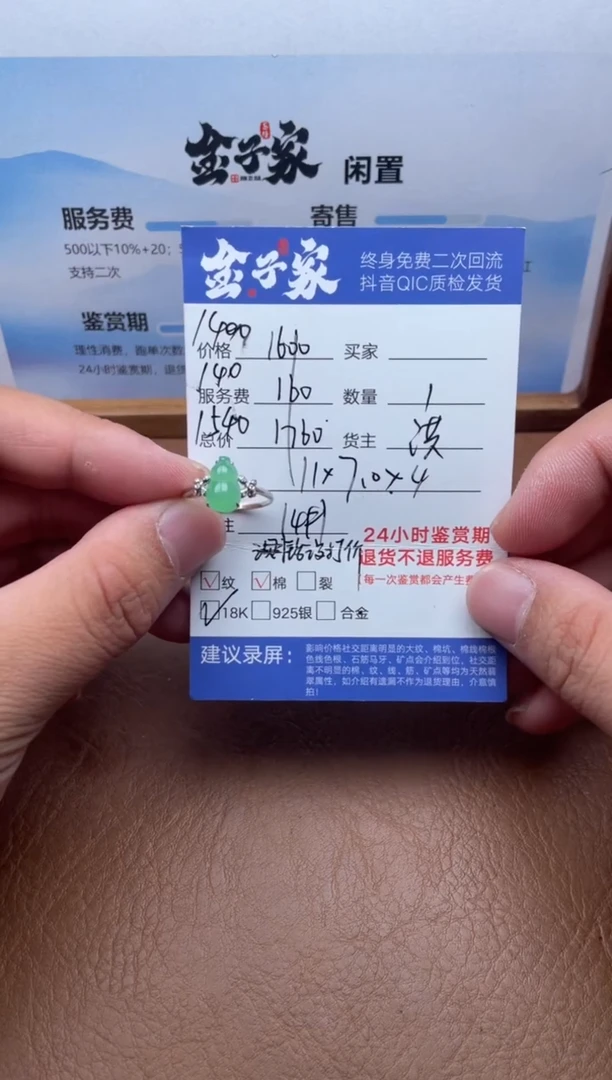 金子家 闲置
服务费 寄售
500以下10%+20;
支持二次
鉴赏期
理性消费,跑单次数
24小时鉴赏期,退货
金子家
终身免费二次回流
抖音QIC质检发货
1400
价格 1600 买家
140
服务费 160 数量 1
1540
总价 1760 货主 洪
11×7.0×4
24小时鉴赏期
退货不退服务费
每一次鉴赏都会产生费
纹 棉 裂
18K 925银 合金
建议录屏:
影响价格社交距离明显的大纹、棉坑、棉线棉根
色线色根、石筋马牙,矿点会介绍到位,社交距
离不明显的棉、纹、线、筋、矿点等均为天然翡
翠属性,如介绍有遗漏不作为退货理由,介意慎
拍!